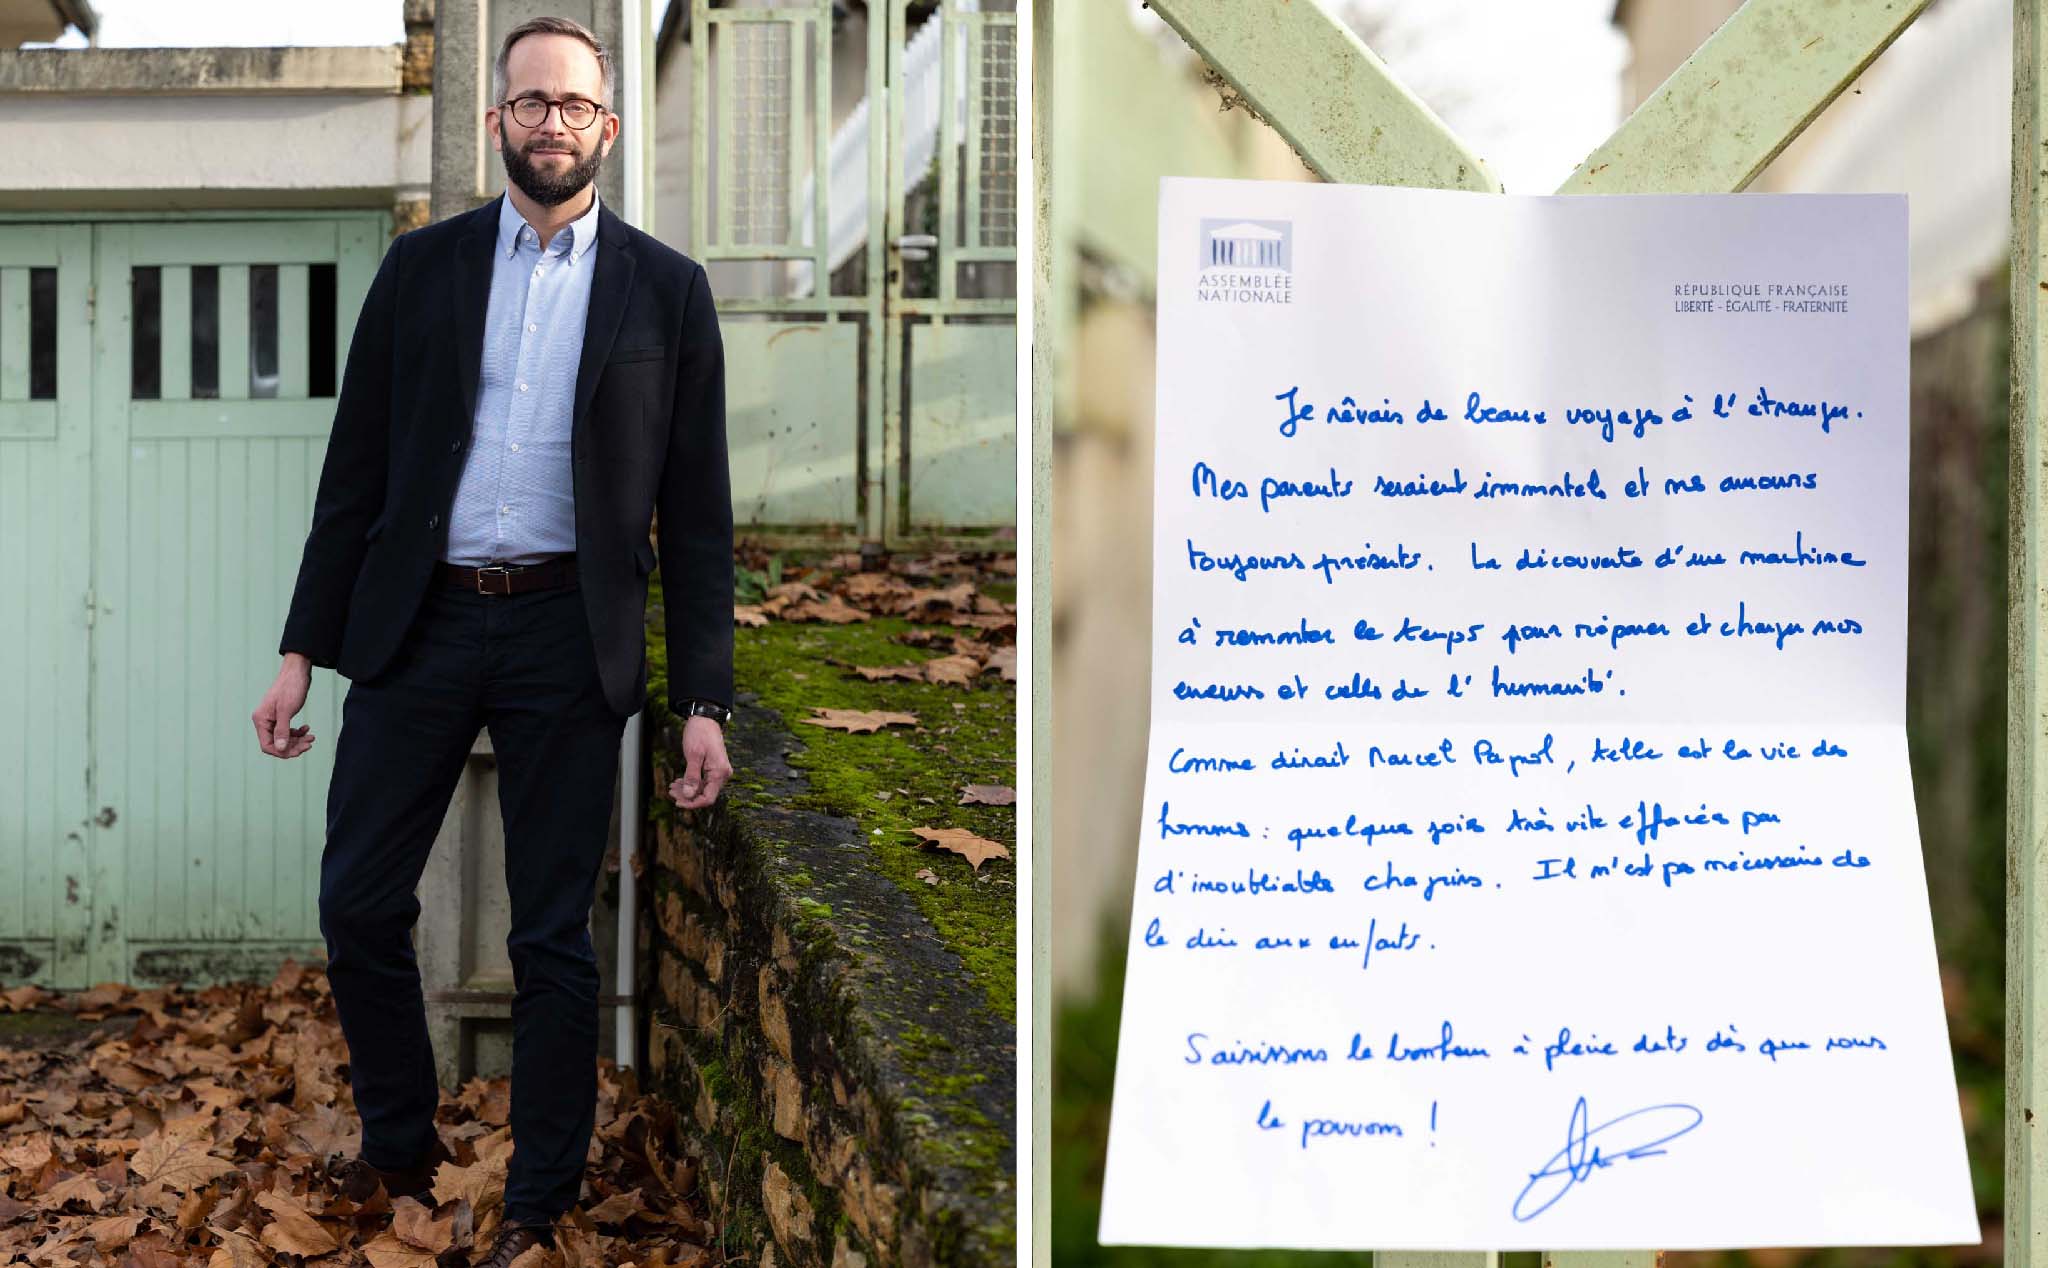 ASSEMBLÉE
NATIONALE
RÉPUBLIQUE FRANÇAISE
LIBERTÉ - ÉGALITÉ - FRATERNITÉ
Je rêvais de beaux voyages à l'étranger.
Mes parents seraient immortels et mes amours
toujours présents. La découverte d'une machine
à remonter le temps pour réparer et changer nos
erreurs et celles de l'humanité.
Comme dirait Marcel Pagnol, telle est la vie des
hommes : quelques joies très vite effacées par
d'inoubliables chagrins. Il n'est pas nécessaire de
le dire aux enfants.
Saisissons le bonheur à pleine dents dès que nous
le pouvons !